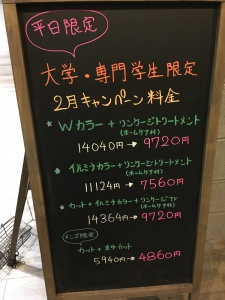 平日限定
大学・専門学生限定
2月キャンペーン料金
★ Wカラー + リンケージトリートメント
(ホームケア付)
14040円→9720円
★ イルミナカラー+リンケージトリートメント
(ホームケア付)
11124円→7560円
★ カット+イルミナカラー+リンケージTr
(ホームケア付)
14364円→9720円
メンズ限定
カット+眉カット
5940円→4860円